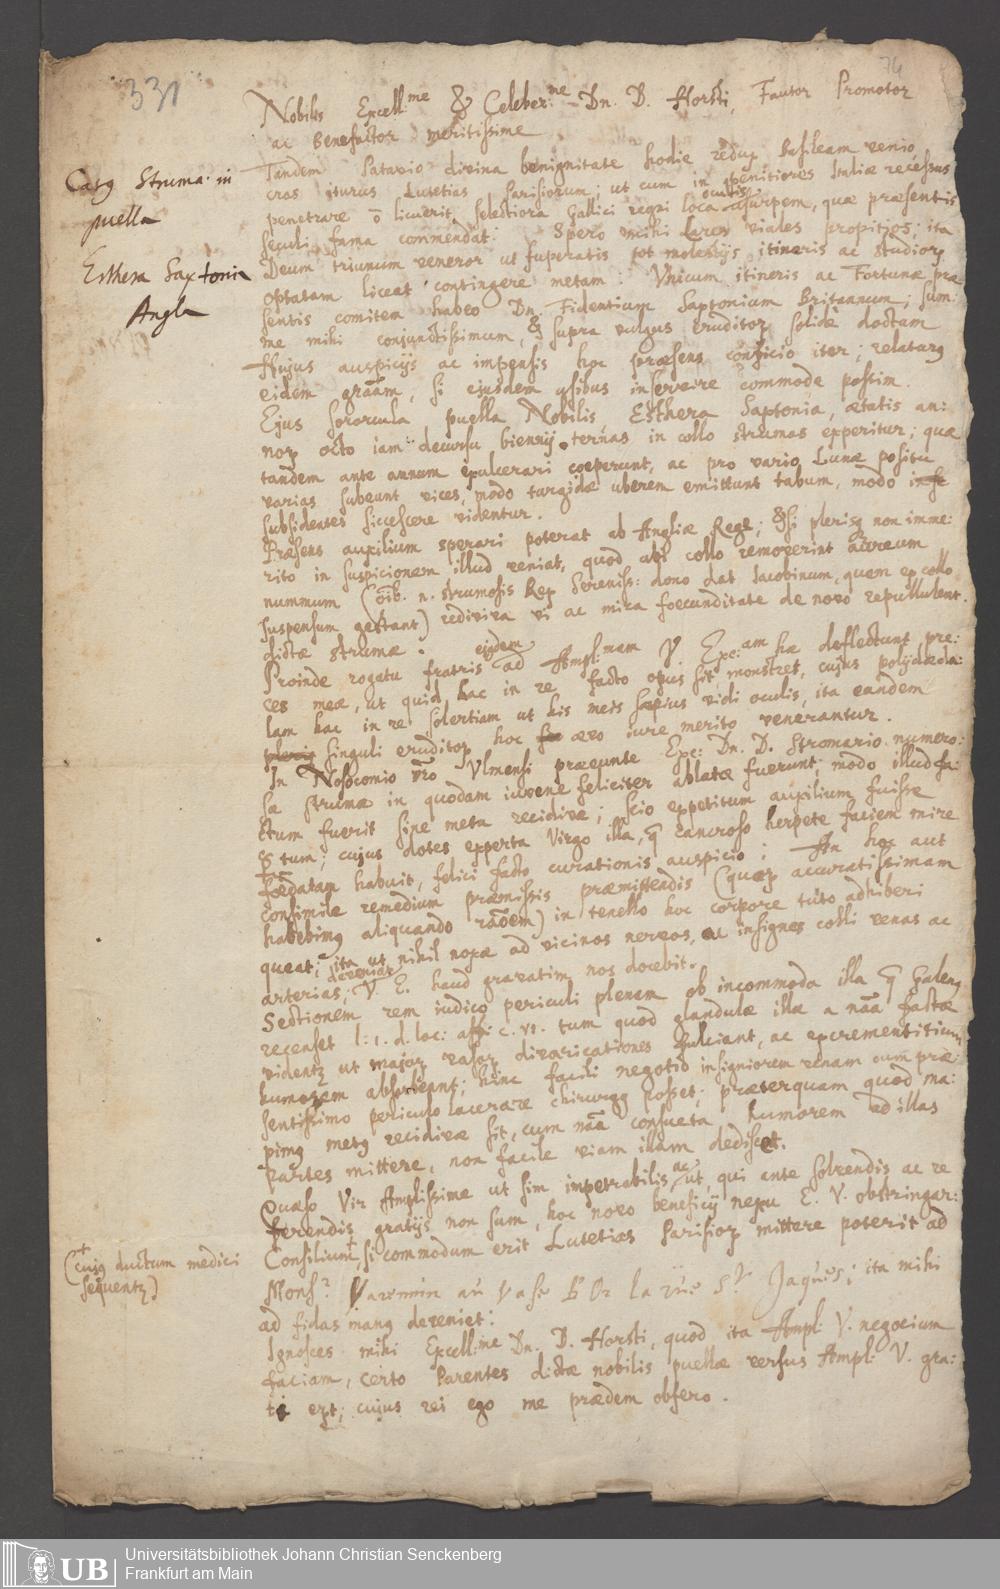 331
74
Nobilis Excell:me & Celeber:me Dn. D. Horsti, Fautor Promotor
ac Benefactor meritissime
Casq Struma: in
puella
Esthera Saxtonia
Angla
Tandem Patavio divina benignitate hodie redux Basileam venio
cras iturus Lutetias Parisiorum; ut cum in penitiores Italiæ recessus
penetrare õ licuerit, selectiora Gallici regni loca oculis usurpem, quæ præsentis
seculi fama commendat: Spero mihi Lares viales propitios; ita
Deum triunum veneror ut superatis tot molestijs itineris ac studiorz
optatam liceat contingere metam. Unicum itineris ac Fortunæ præ
sentis comitem habeo Dn. Fidentium Saptonium Britannum; sum:
me mihi conjunctissimum, & supra vulgus eruditorz solidè doctum
Hujus auspicijs ac impensis hoc præsens conficio iter; relaturq
eidem grãam, si ejusdem usibus inservire commode possim.
Ejus sororcula puella Nobilis Esthera Saptonia, ætatis an:
norz octo iam decursu biennij ternas in collo strumas experitur; quæ
tandem ante annum exulcerari coeperunt, ac pro vario Lunæ positu
varias subeunt vices, modo turgidæ uberem emittunt tabum, modo
subsidentes siccescere videntur.
Præsens auxilium sperari poterat ab Angliæ Rege; & si plerisq non imme:
rito in suspicionem illud veniat, quod ubi collo removerint aureum
nummum (õib. n. strumosis Rex Sereniss: dono dat Iacobinum, quem ex collo
suspensum gestant) rediviva vi ac mira foecunditate de novo repullulent
dictæ strumæ.
Proinde rogatu fratris ejusdem ad Ampl:mam V. Exc:am hæ deflectunt pre:
ces meæ, ut quid hac in re facto opus sit monstret, cujus polydæda:
lam hac in re solertiam ut his meis sæpius vidi oculis, ita eandem
singuli eruditorz hoc ævo iure merito venerantur.
In Nosocomio vro Ulmensi præeunte Exc: Dn. D. Stromario numero:
sæ strumæ in quodam iuvene feliciter ablatæ fuerunt; modo illud fa:
ctum fuerit sine metu recidivæ; scio expetitum auxilium fuisse
& tum; cujus dotes experta Virgo illa, q cancroso herpete faciem mire
foedatam habuit, felici facto curationis auspicio; An hoc aut
consimile remedium præmissis præmittendis (quarz accuratissimam
habebimq aliquando rãoem) in tenello hoc corpore tuto adhiberi
queat; ita ut nihil noxæ ad vicinos nervos, ac insignes colli venas ac
arterias; deveniat V. E. haud gravatim nos docebit.
Sectionem rem iudico periculi plenam ob incommoda illa q Galenq
recenset l: 1. d. loc: aff: c. VI. tum quod glandulæ illæ a nãa factæ
videntz ut majorz vasorz divaricationes fulciant, ac excrementitium
humorem absorbeant; hinc facili negotio insigniorem venam cum præ:
sentissimo periculo lacerare chirurgq posset; præterquam quod ma:
ximq metq recidivæ sit, cum nãa consueta humorem ad illas
partes mittere, non facile viam illam dediscet.
Quæso Vir Amplissime ut sim impetrabilis, ac ut, qui ante solvendis ac re
ferendis gratijs non sum, hoc novo beneficij nexu E. V. obstringar:
Consilium+, si commodum erit Lutetias Parisiorz mittere poterit ad
(+ cujq ductum medici
sequentz)
Monsr. Varennin au Vase d'Or la rüe St Jaques; ita mihi
ad fidas manq deveniet:
Ignosces mihi Excell:me Dn. D. Horsti, quod ita Ampl: V. negocium
faciam, certo Parentes dictæ nobilis puellæ versus Ampl: V. gra:
ti ert; cujus rei ego me prædem obfero.
UB
Universitätsbibliothek Johann Christian Senckenberg
Frankfurt am Main